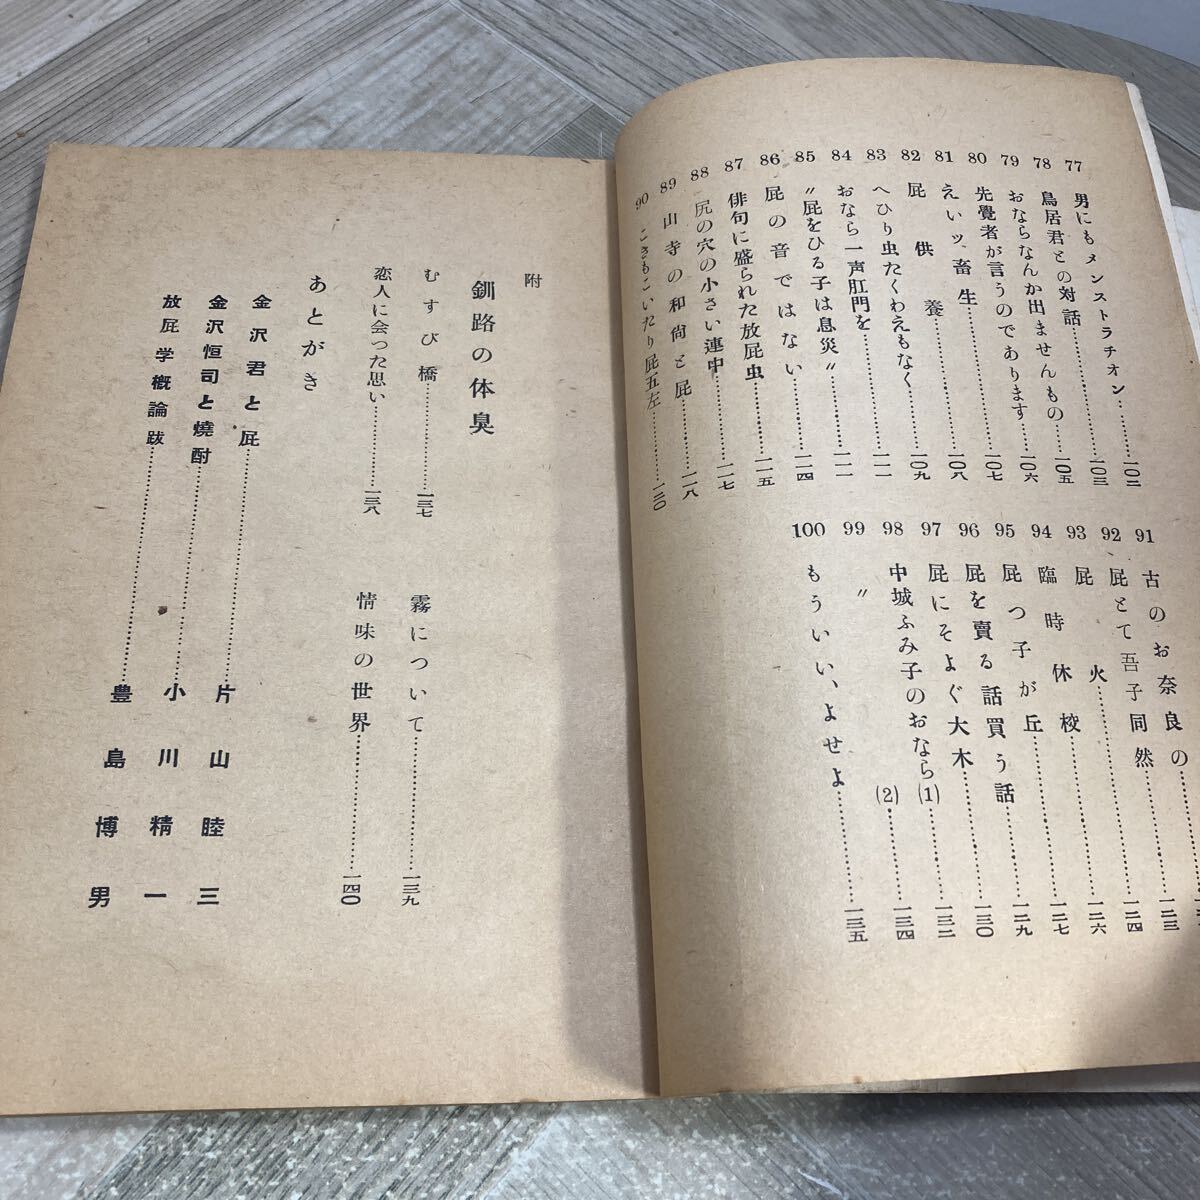 77 男にもメンストラチオン……一〇二
78 鳥居君との対話……一〇三
79 おならなんか出ませんもの……一〇五
80 先覺者が言うのであります……一〇六
81 えいッ畜生……一〇七
82 屁供養……一〇八
83 へひり虫たくわえもなく……一〇九
84 おなら一声肛門を……一一一
85 〝屁をひる子は息災〟……一一一
86 屁の音ではない……一一四
87 俳句に盛られた放屁虫……一一五
88 尻の穴の小さい連中……一一七
89 山寺の和尚と屁……一一八
90 こきもこいたり屁五左……一二〇
91 古のお奈良の……
92 屁とて吾子同然……一二三
93 屁火……一二四
94 臨時休校……一二六
95 屁つ子が丘……一二七
96 屁を賣る話買う話……一二九
97 屁にそよぐ大木……一三〇
98 中城ふみ子のおなら(1)……一三二
99 〃 (2)……一三四
100 もういい、よせよ……一三五
附
釧路の体臭
むすび橋……一三七
霧について……一三九
恋人に会った思い……一三八
情味の世界……一四〇
あとがき
金沢君と屁……片山睦三
金沢恒司と燒酎……小川精一
放屁学概論跋……豊島博男